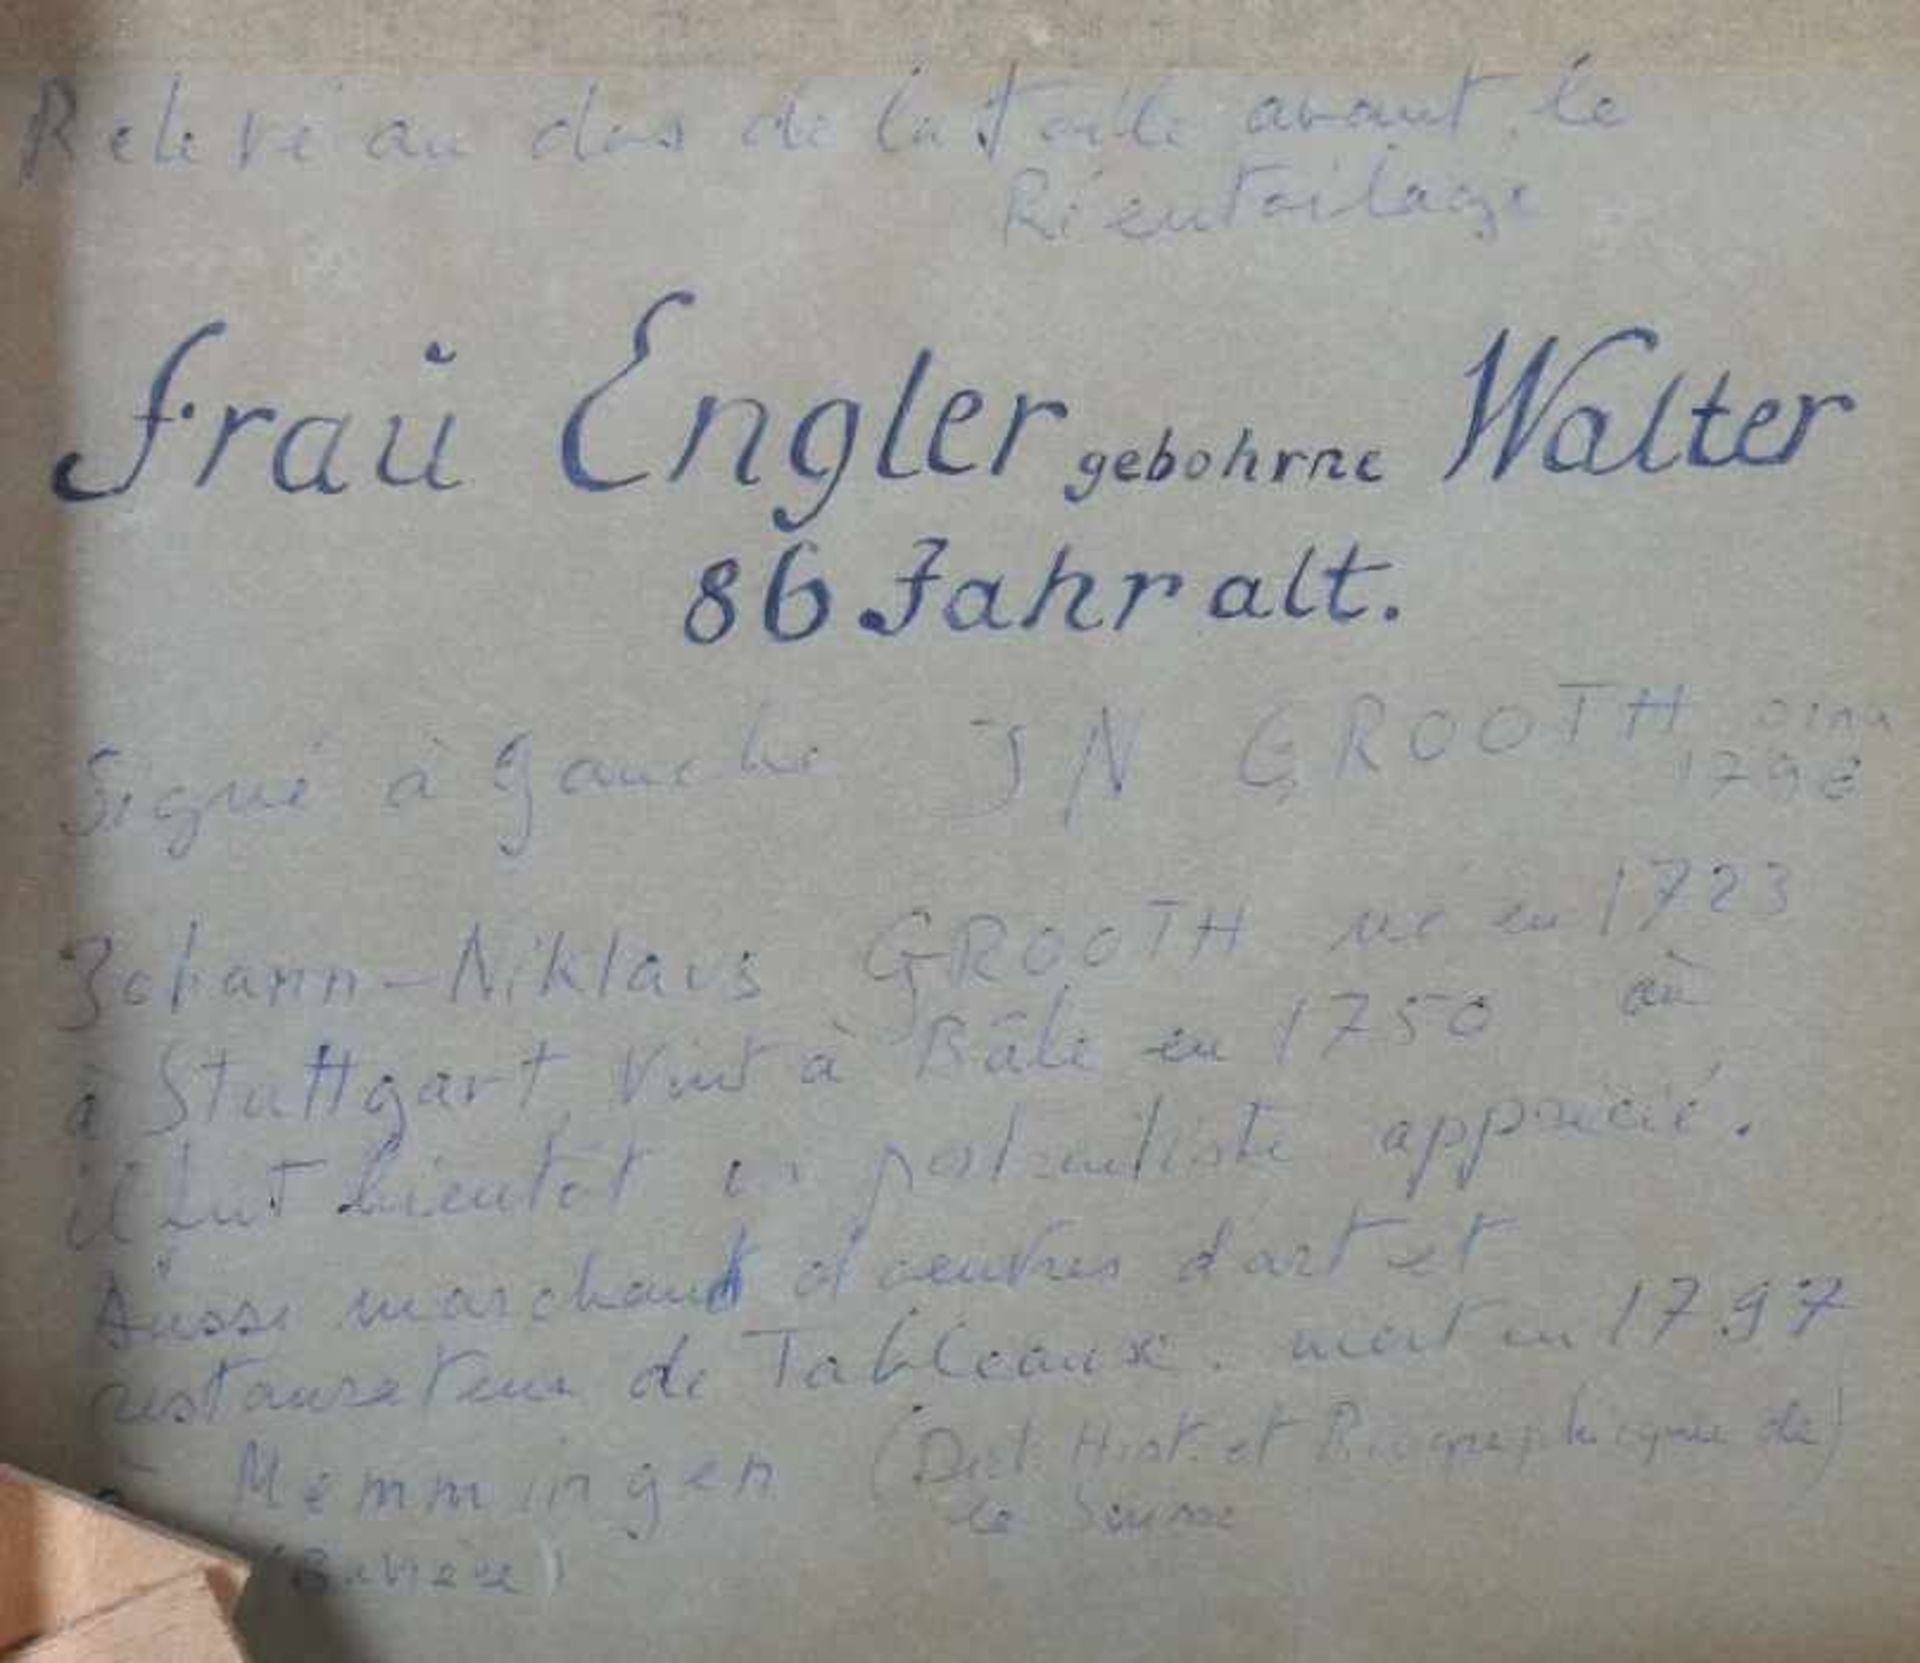 Relevé au dos de la Toile avant le
Rientoilage
Fraŭ Engler gebohrne Walter
86 Jahr alt.
Signé à gauche JN GROOTH
Johann-Niklaus GROOTH né en 1723
à Stuttgart, Vint à Bâle en 1750 où
il fut bientôt un portraitiste apprécié.
Aussi marchand d'oeuvres d'art et
restaurateur de Tableaux. mort en 1797
à Memmingen (Dict. Hist. et Biographique de)
la Suisse
(Bavière)